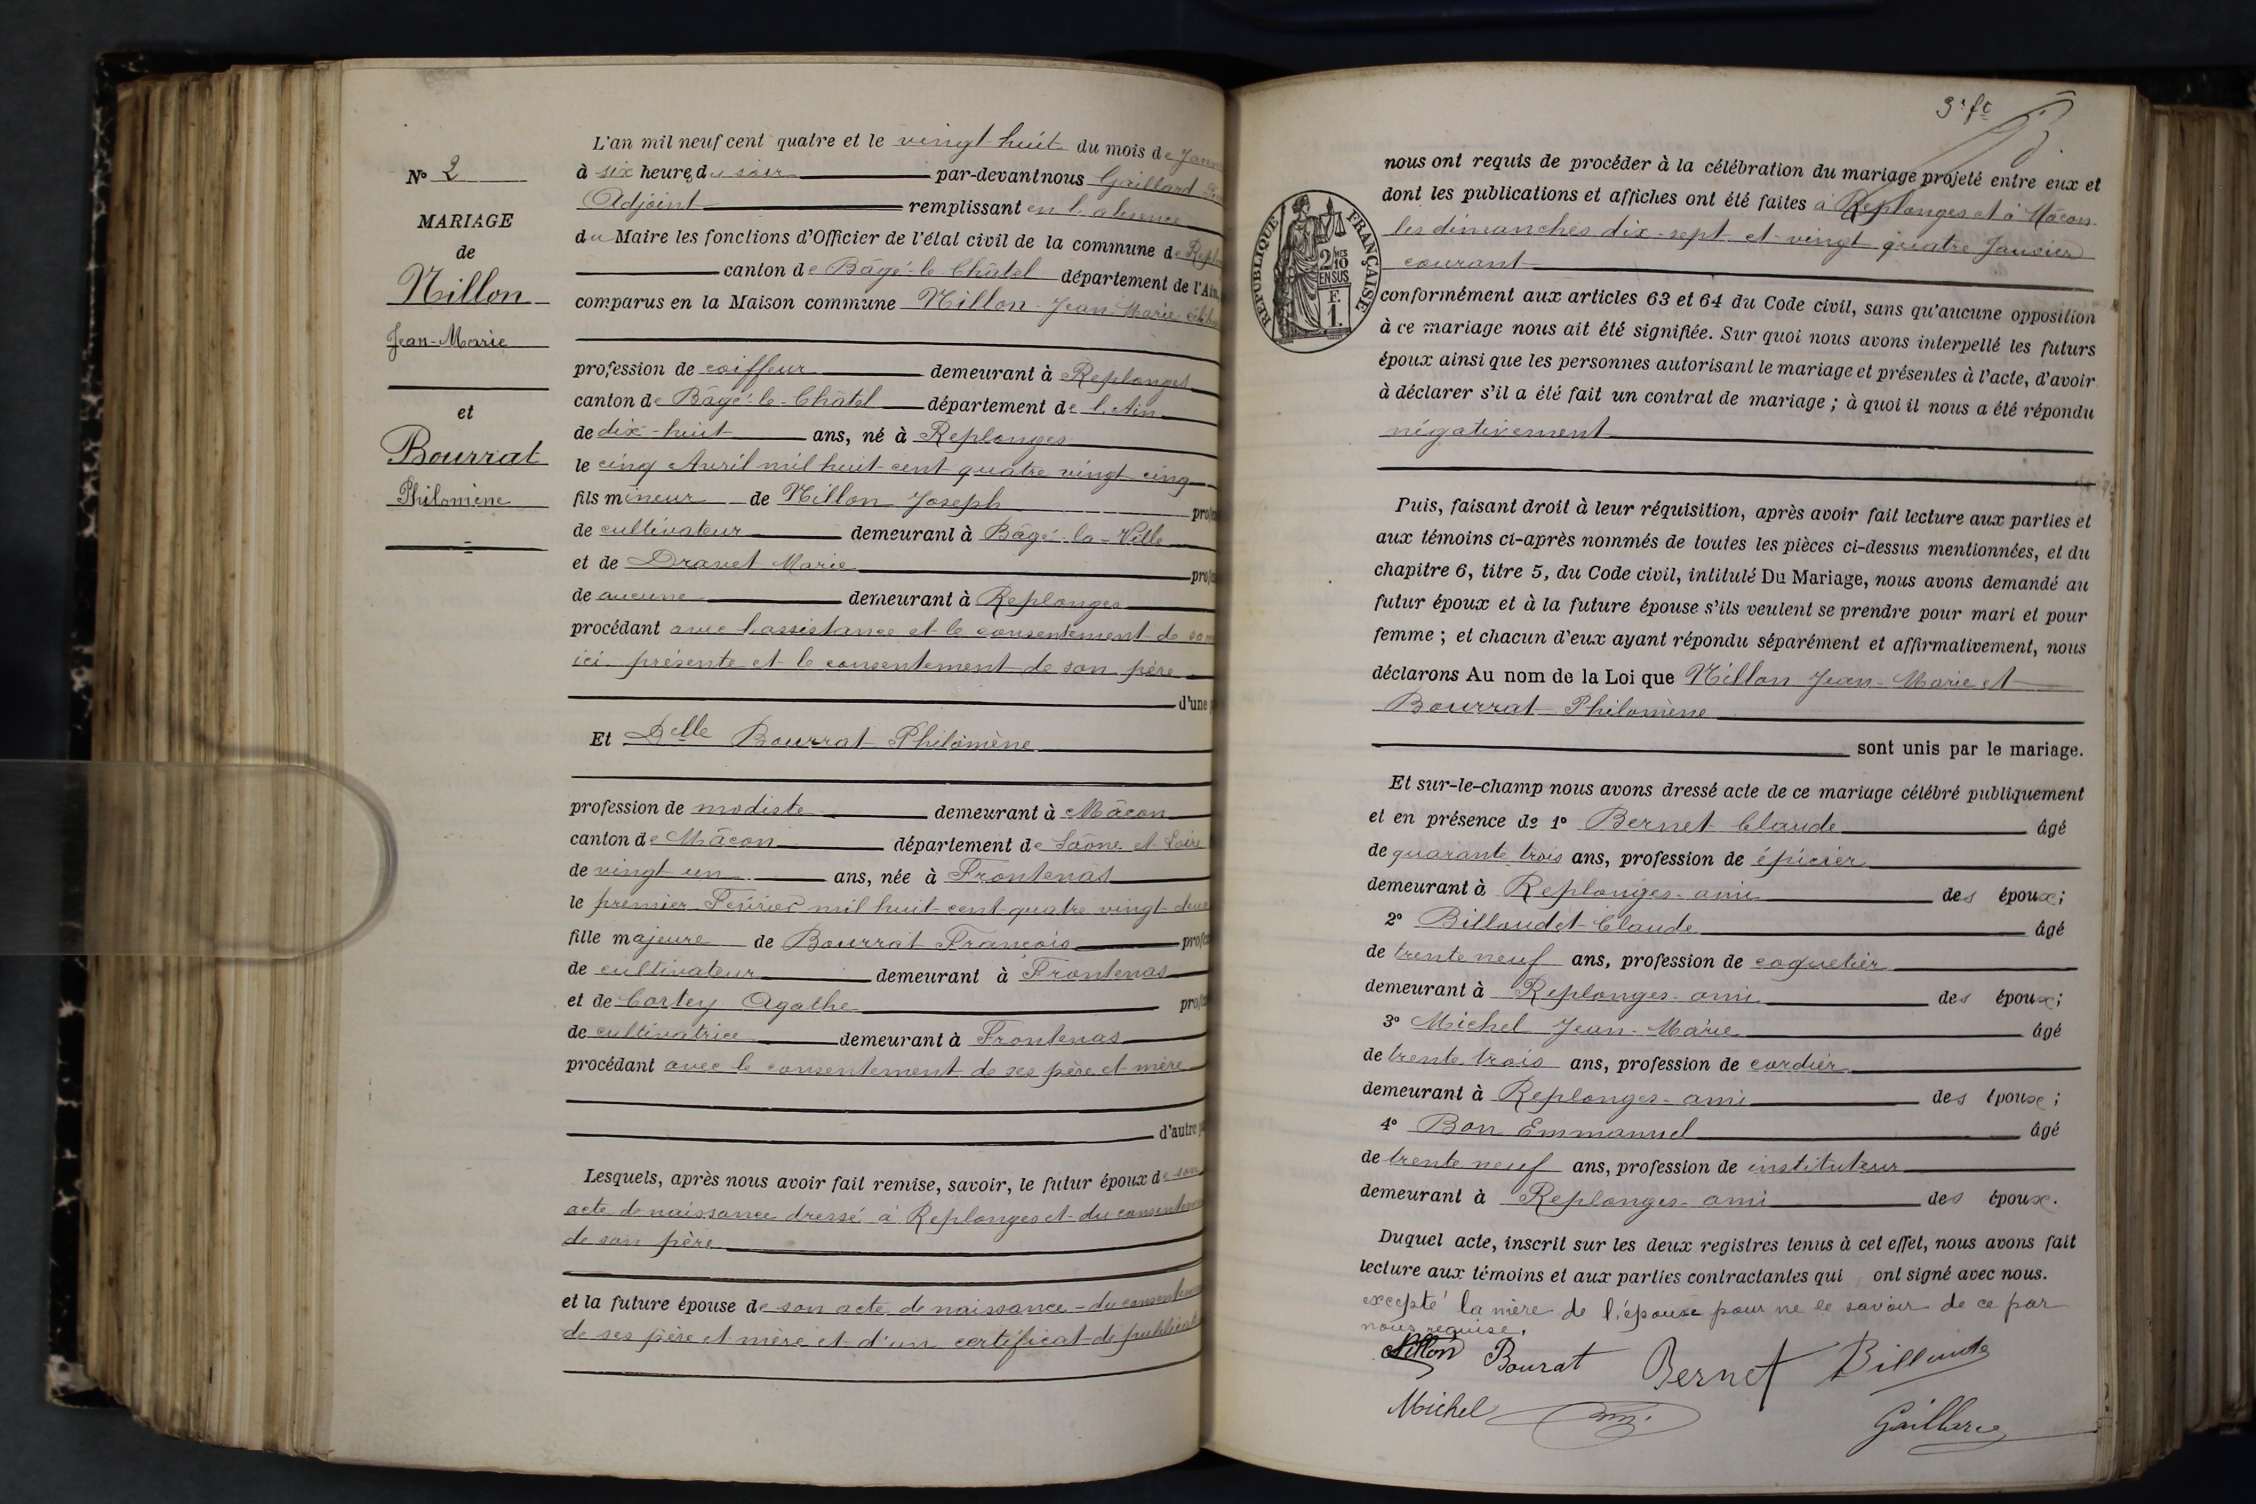 N° 2
MARIAGE
de
Nillon
Jean-Marie
et
Bourrat
Philomène
L'an mil neuf cent quatre et le vingt huit du mois de Janv
à six heures du soir par-devant nous Gaillard
Adjoint remplissant en l'absence
du Maire les fonctions d'Officier de l'état civil de la commune de Repl
canton de Bâgé-le-Châtel département de l'Ain,
comparus en la Maison commune Nillon Jean-Marie
profession de coiffeur demeurant à Replonges
canton de Bâgé-le-Châtel département de l'Ain
de dix-huit ans, né à Replonges
le cinq Avril mil huit-cent quatre vingt-cinq
fils mineur de Nillon Joseph prof
de cultivateur demeurant à Bâgé-la-Ville
et de Dravet Marie prof
de aucune demeurant à Replonges
procédant avec l'assistance et le consentement de sa m
ici présente et le consentement de son père
d'une p
Et Delle Bourrat Philomène
profession de modiste demeurant à Mâcon
canton de Mâcon département de Saône et Loire
de vingt un ans, née à Frontenas
le premier Février mil huit-cent-quatre vingt-deux
fille majeure de Bourrat François profes
de cultivateur demeurant à Frontenas
et de Cortey Agathe prof
de cultivatrice demeurant à Frontenas
procédant avec le consentement de ses père et mère
d'autre p
Lesquels, après nous avoir fait remise, savoir, le futur époux de son
acte de naissance dressé à Replonges et du consentem
de son père
et la future épouse de son acte de naissance - du consentem
de ses père et mère et d'un certificat de publicat
3e ft
nous ont requis de procéder à la célébration du mariage projeté entre eux et
dont les publications et affiches ont été faites à Replonges et à Mâcon
les dimanches dix-sept et vingt quatre Janvier
courant
RÉPUBLIQUE FRANÇAISE
2 MES 10
EN SUS
F.
1.
conformément aux articles 63 et 64 du Code civil, sans qu'aucune opposition
à ce mariage nous ait été signifiée. Sur quoi nous avons interpellé les futurs
époux ainsi que les personnes autorisant le mariage et présentes à l'acte, d'avoir
à déclarer s'il a été fait un contrat de mariage ; à quoi il nous a été répondu
négativement
Puis, faisant droit à leur réquisition, après avoir fait lecture aux parties et
aux témoins ci-après nommés de toutes les pièces ci-dessus mentionnées, et du
chapitre 6, titre 5, du Code civil, intitulé Du Mariage, nous avons demandé au
futur époux et à la future épouse s'ils veulent se prendre pour mari et pour
femme ; et chacun d'eux ayant répondu séparément et affirmativement, nous
déclarons Au nom de la Loi que Nillon Jean-Marie et
Bourrat Philomène
sont unis par le mariage.
Et sur-le-champ nous avons dressé acte de ce mariage célébré publiquement
et en présence de 1° Bernet Claude âgé
de quarante trois ans, profession de épicier
demeurant à Replonges - ami des époux ;
2° Billoudet Claude âgé
de trente neuf ans, profession de coquetier
demeurant à Replonges - ami des époux ;
3° Michel Jean-Marie âgé
de trente trois ans, profession de cordier
demeurant à Replonges - ami des époux ;
4° Bon Emmanuel âgé
de trente neuf ans, profession de instituteur
demeurant à Replonges - ami des époux.
Duquel acte, inscrit sur les deux registres tenus à cet effet, nous avons fait
lecture aux témoins et aux parties contractantes qui ont signé avec nous.
excepté la mère de l'époux pour ne le savoir de ce par
nous requise.
Nillon Bourat Bernet Billoudet
Michel Gaillard